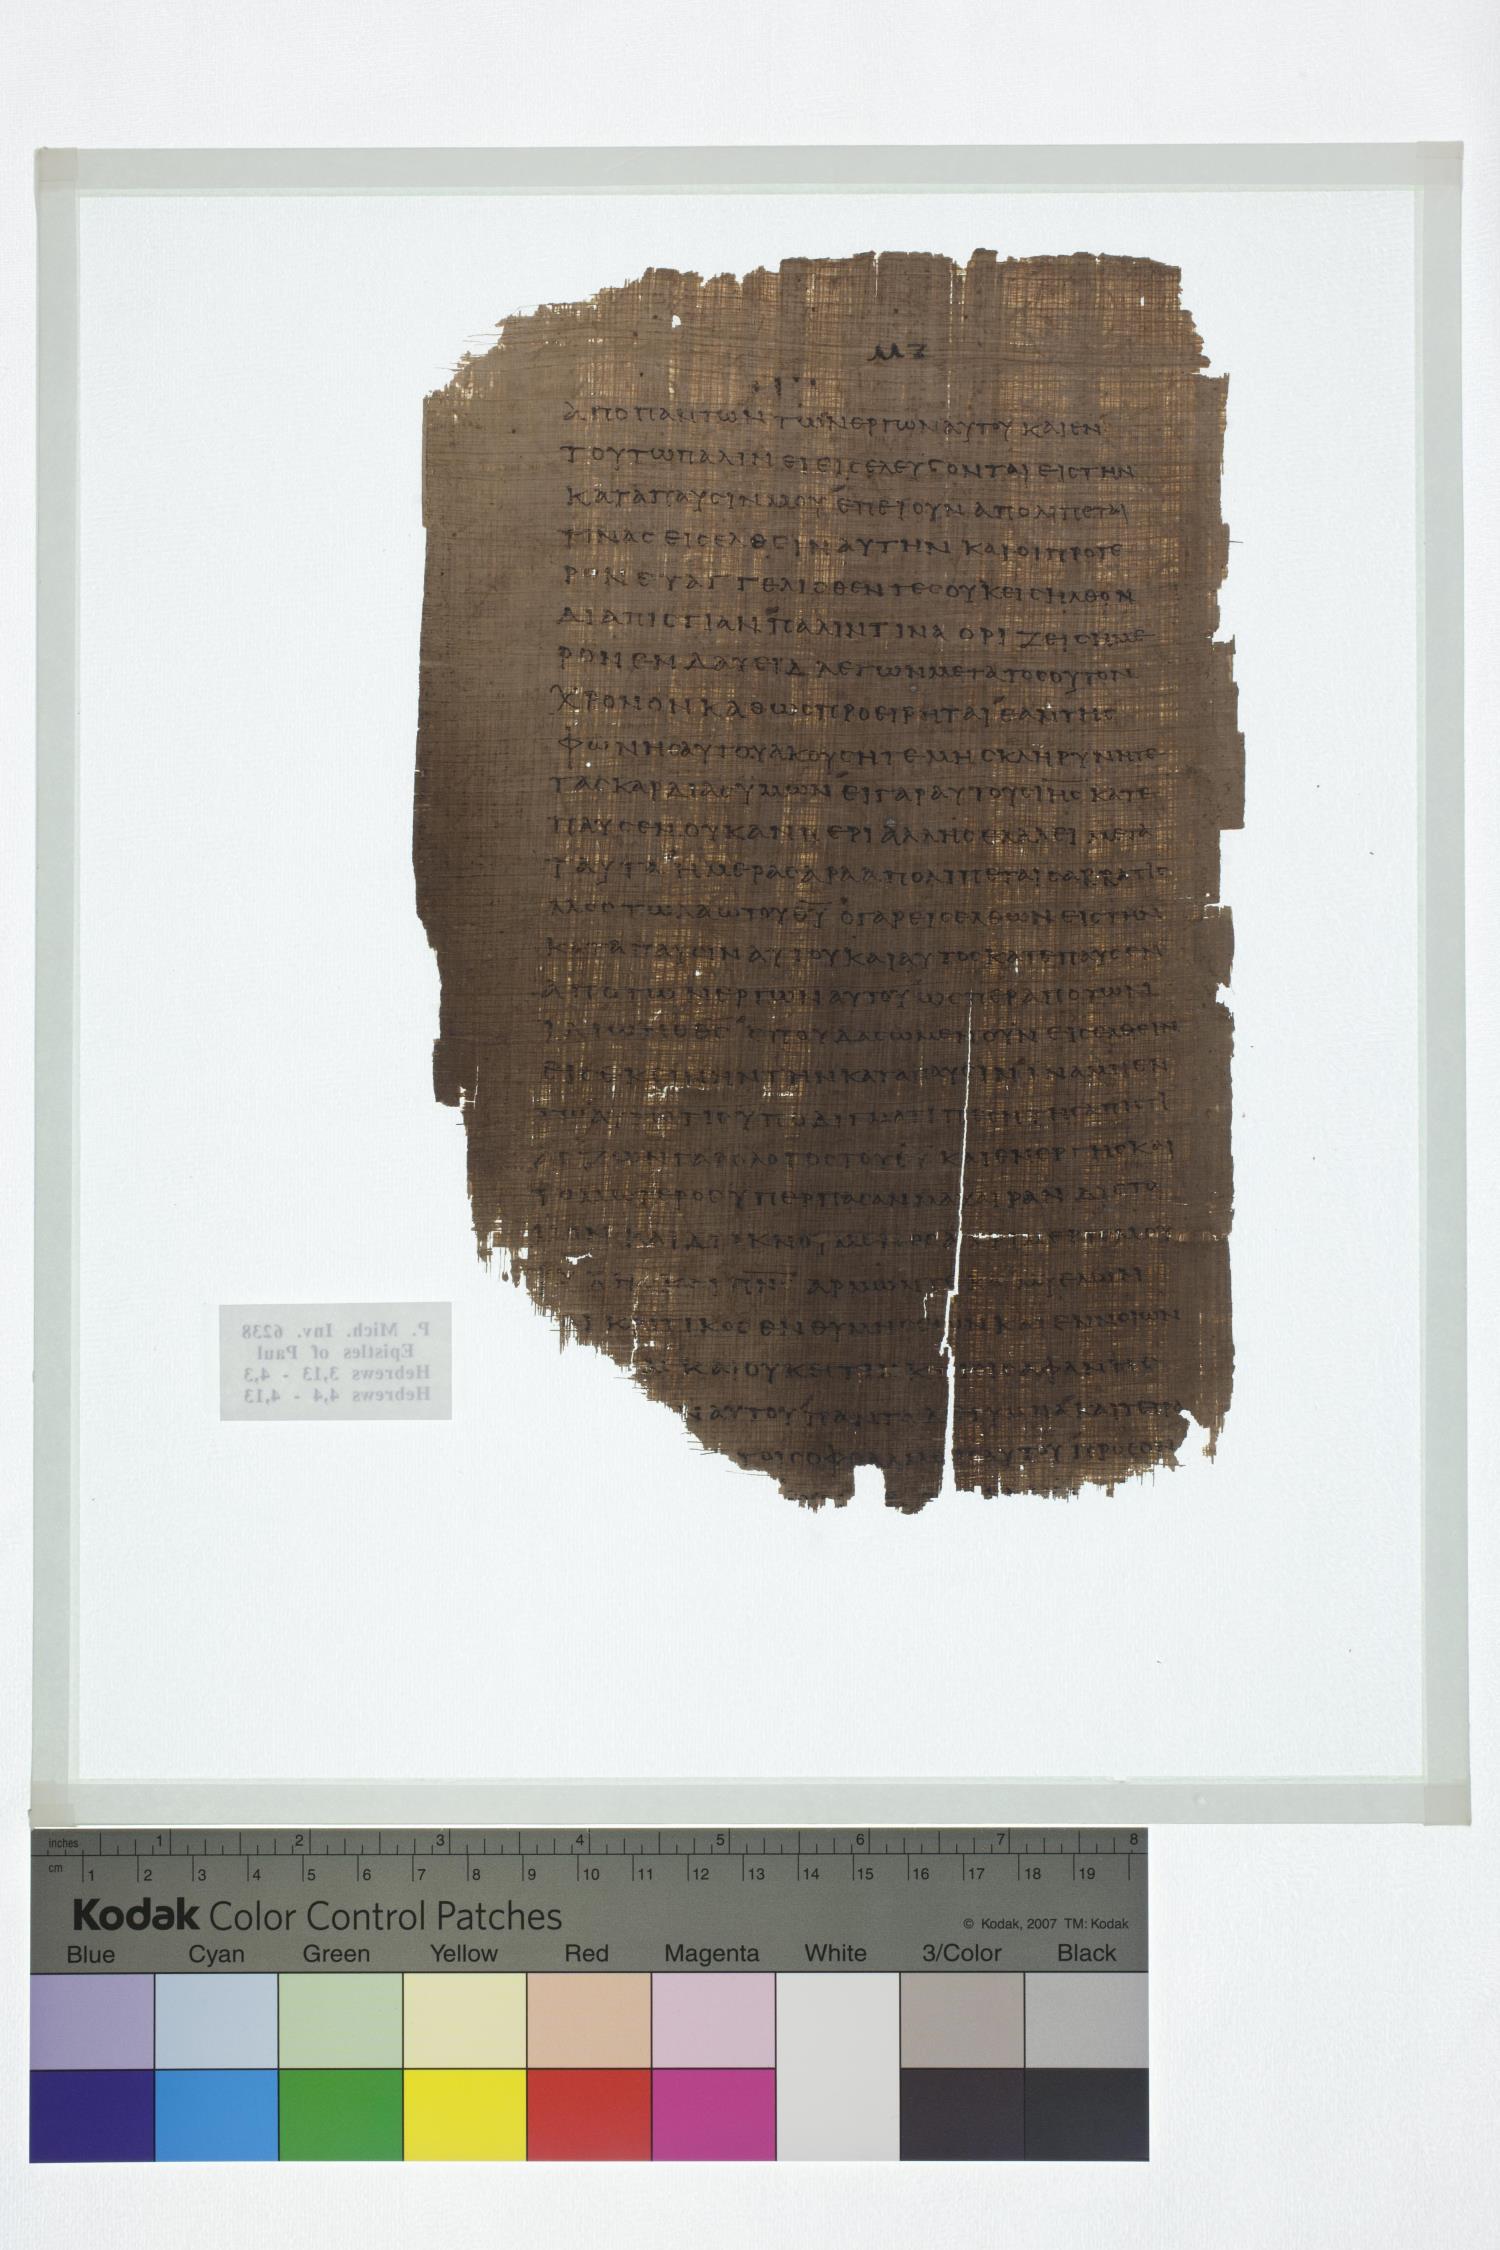 μζ
αποπαντωντωνεργωναυτουκαιεν
τουτωπαλινειεισελευσονταιειστην
καταπαυσινμουεπειουναπολιπεται
τινασεισελθειναυτηνκαιοιπροτε
ρονευαγγελισθεντεσουκεισηλθον
διαπιστιανπαλιντιναοριζεισημε
ρονενδαυειδλεγωνμετατοσουτον
χρονονκαθωσπροειρηταιεαντησ
φωνησαυτουακουσητεμησκληρυνητε
τασκαρδιασυμωνειγαραυτουσιησκατε
παυσενουκανπεριαλλησελαλειμετα
ταυταημερασαρααπολιπεταισαββατισ
μοστωλαωτουθυογαρεισελθωνειστην
καταπαυσιναυτουκαιαυτοσκατεπαυσεν
αποτωνεργωναυτουωσπεραποτων
ιδιωνοθσσπουδασωμενουνεισελθειν
εισεκεινηντηνκαταπαυσινιναμηεν
υποδιγματιπεσητησαπιστι
γαρολογοστουθυκαιενεργησκαι
τομωτεροσυπερπασανμαχαιρανδιστο
αρμων
κριτικοσενθυμησεωνκαιεννοιων
καιουκεστιν
αυτουπαντα
τοισοφθαλμοισαυτουπροσον
P. Mich. Inv. 6238
Epistles of Paul
Hebrews 3,13 - 4,3
Hebrews 4,4 - 4,13
inches 1 2 3 4 5 6 7 8
cm 1 2 3 4 5 6 7 8 9 10 11 12 13 14 15 16 17 18 19
Kodak Color Control Patches
© Kodak, 2007 TM: Kodak
Blue Cyan Green Yellow Red Magenta White 3/Color Black